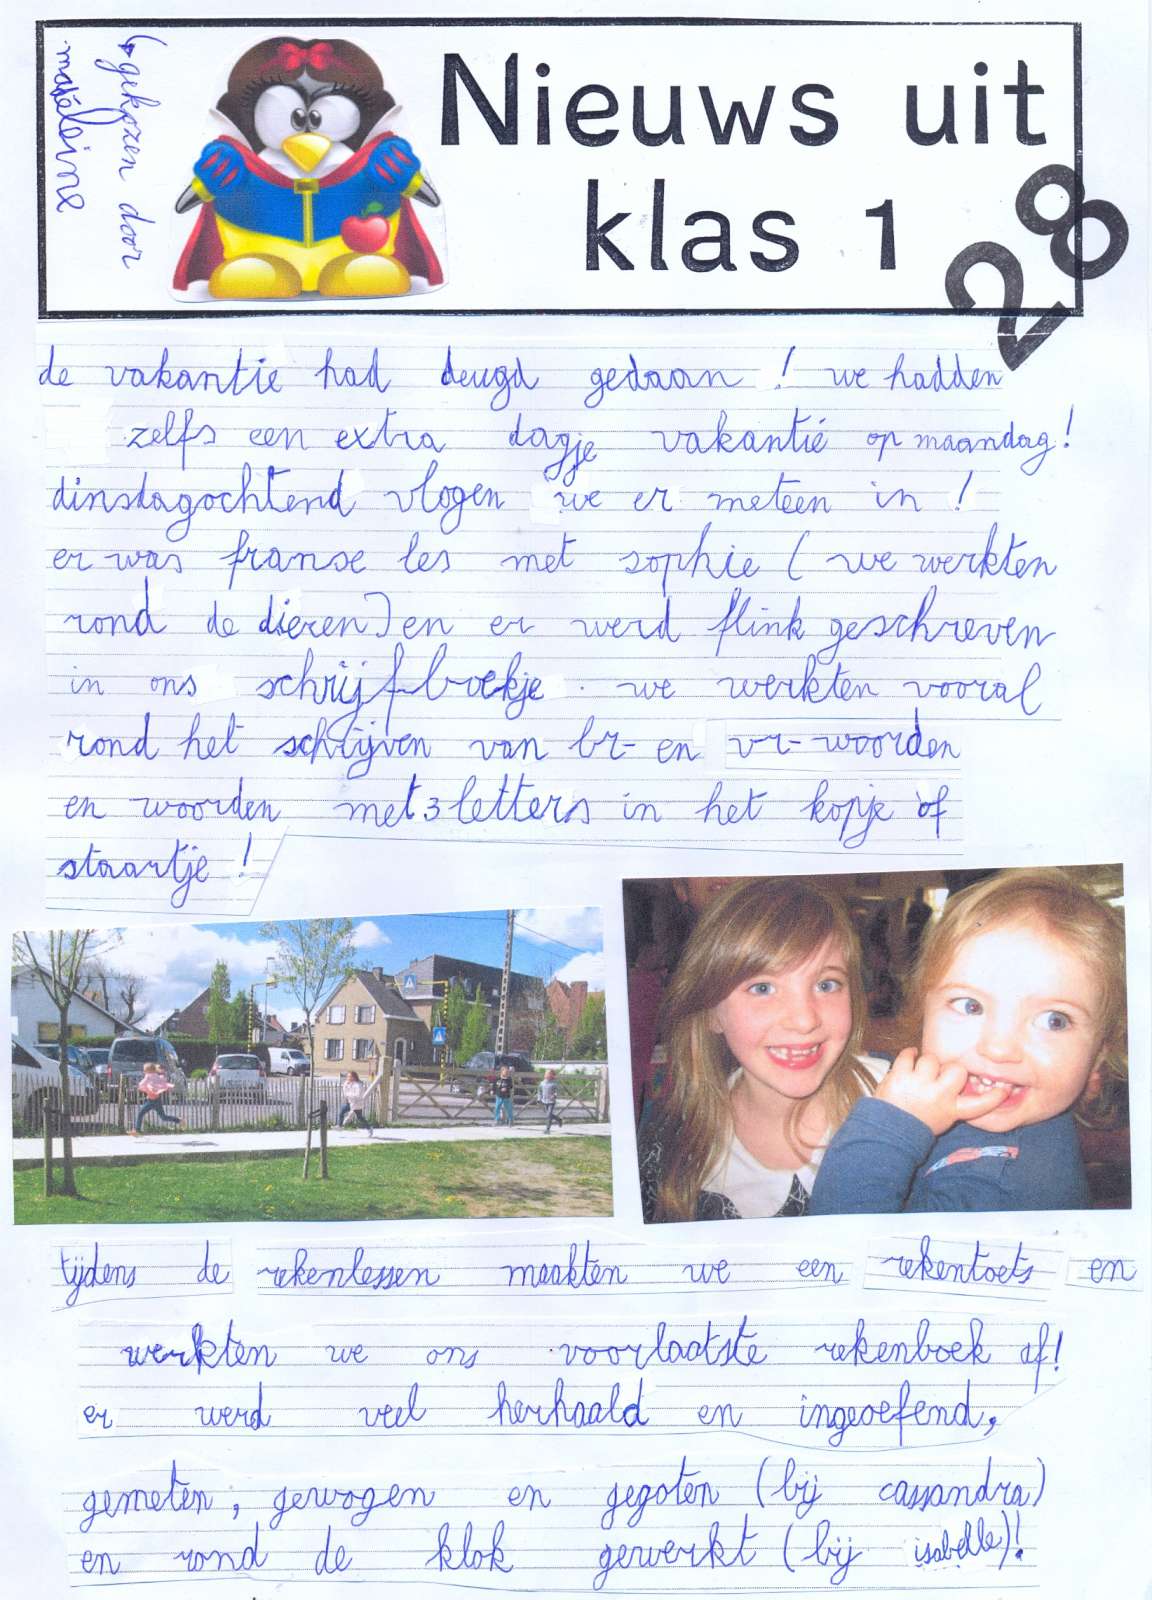 ↳ gekozen door
madeleine
Nieuws uit
klas 1
28
de vakantie had deugd gedaan ! we hadden
zelfs een extra dagje vakantié op maandag!
dinsdagochtend vlogen we er meteen in !
er was franse les met sophie ( we werkten
rond de dieren) en er werd flink geschreven
in ons schrijfboekje . we werkten vooral
rond het schrijven van br- en vr- woorden
en woorden met 3 letters in het kopje of
staartje !
tijdens de rekenlessen maakten we een rekentoets en
werkten we ons voorlaatste rekenboek af!
er werd veel herhaald en ingeoefend,
gemeten, gewogen en gegoten (bij cassandra)
en rond de klok gewerkt (bij isabelle)!